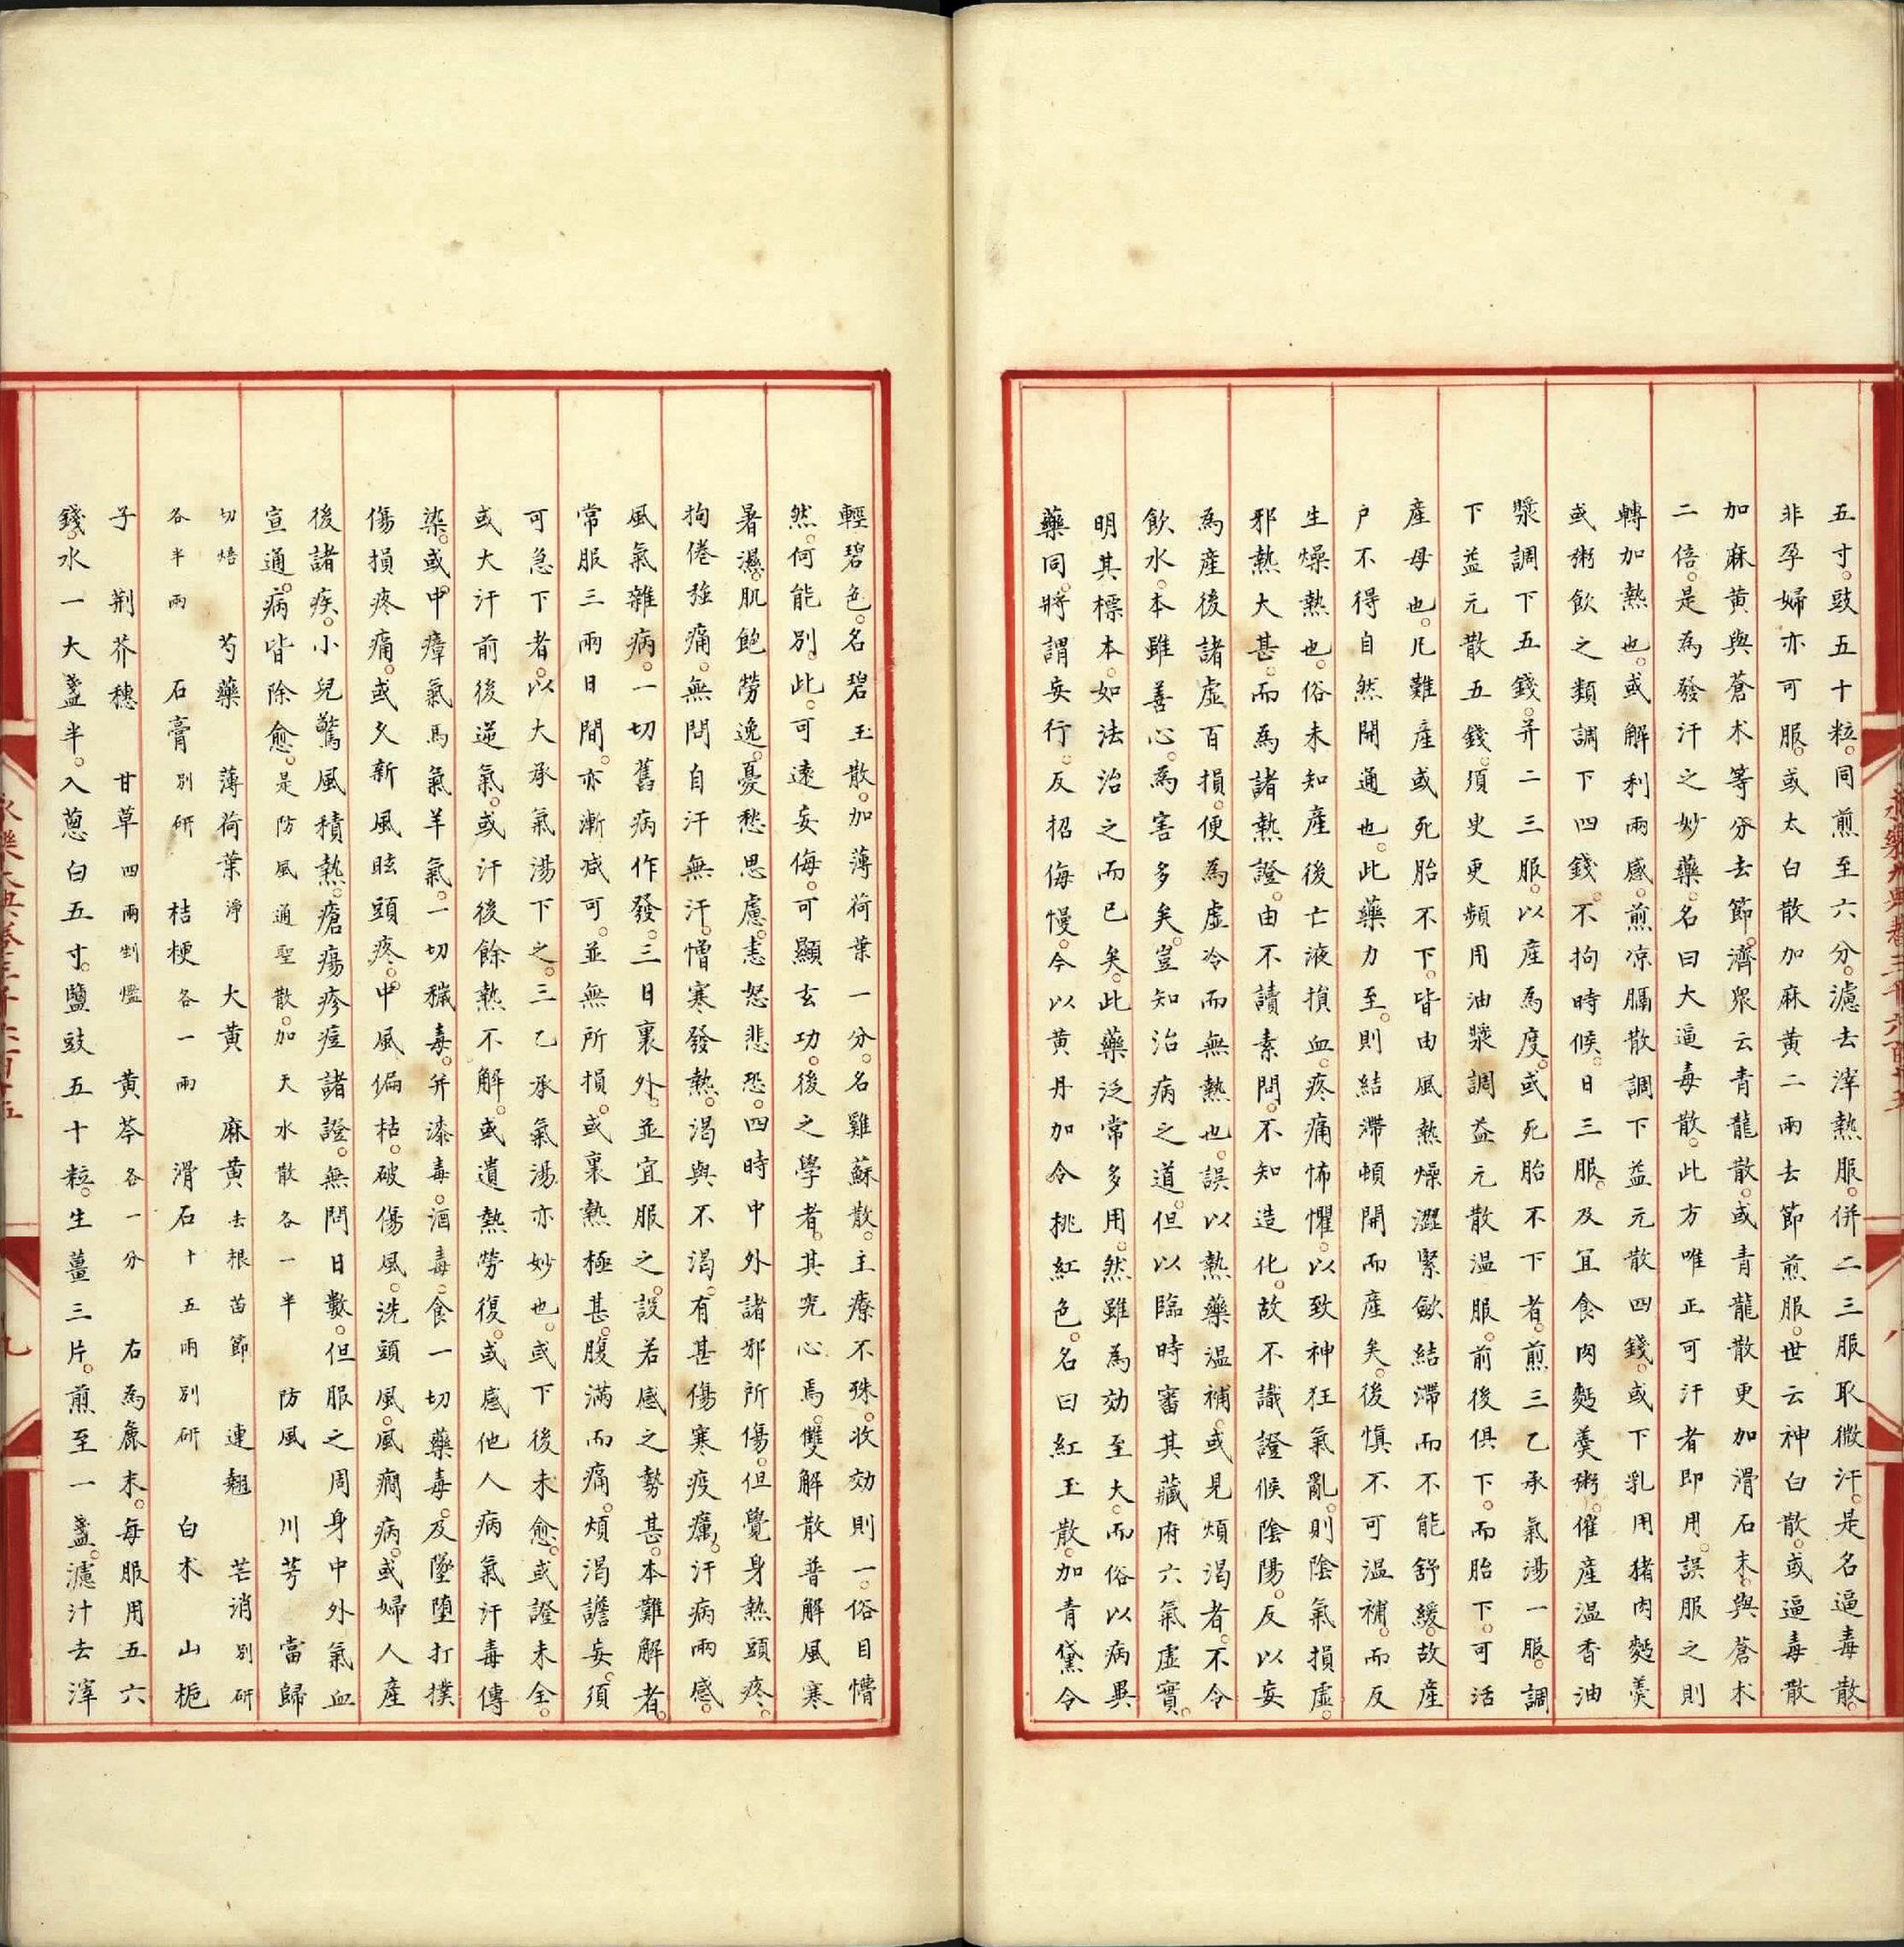 五寸豉五十粒同煎至六分濾去滓熱服併二三服取微汗是名逼毒散
非孕婦亦可服或太白散加麻黃二兩去節煎服世云神白散或逼毒散
加麻黃與蒼术等分去節濟衆云青龍散或青龍散更加滑石末與蒼术
二倍是為發汗之妙藥名曰大逼毒散此方唯正可汗者即用誤服之則
轉加熱也或解利兩感煎凉膈散調下益元散四錢或下乳用猪肉麪羹
或粥飲之類調下四錢不拘時候日三服及冝食肉麪羹粥催產温香油
漿調下五錢并二三服以產為度或死胎不下者煎三乙承氣湯一服調
下益元散五錢須臾更頻用油漿調益元散温服前後俱下而胎下可活
產母也凡難產或死胎不下皆由風熱燥澀緊斂結滯而不能舒緩故產
户不得自然開通也此藥力至則結滯頓開而產矣後慎不可温補而反
生燥熱也俗未知產後亡液損血疼痛怖懼以致神狂氣亂則陰氣損虛
邪熱大甚而為諸熱證由不讀素問不知造化故不識證候陰陽反以妄
為產後諸虛百損便為虛冷而無熱也誤以熱藥温補或見煩渴者不令
飲水本雖善心為害多矣豈知治病之道但以臨時審其藏府六氣虛實
明其標本如法治之而已矣此藥泛常多用然雖為効至大而俗以病異
藥同將謂妄行反招侮慢今以黃丹加令桃紅色名曰紅玉散加青黛令
輕碧色名碧玉散加薄荷葉一分名雞蘇散主療不殊收効則一俗目懵
然何能別此可遠妄侮可顯玄功後之學者其究心焉雙解散普解風寒
暑濕肌飽勞逸憂愁思慮恚怒悲恐四時中外諸邪所傷但覺身熱頭疼
拘倦强痛無問自汗無汗憎寒發熱渴與不渴有甚傷寒疫癘汗病兩感
風氣雜病一切舊病作發三日裏外並宜服之設若感之勢甚本難解者
常服三兩日間亦漸減可並無所損或裏熱極甚腹滿而痛煩渴譫妄須
可急下者以大承氣湯下之三乙承氣湯亦妙也或下後未愈或證未全
或大汗前後逆氣或汗後餘熱不解或遺熱勞復或感他人病氣汗毒傳
染或中瘴氣馬氣羊氣一切穢毒并漆毒酒毒食一切藥毒及墜墮打撲
傷損疼痛或久新風眩頭疼中風偏枯破傷風洗頭風風癇病或婦人產
後諸疾小兒驚風積熱瘡瘍疹痘諸證無問日數但服之周身中外氣血
宣通病皆除愈是防風通聖散加天水散各一半　防風　川芎　當歸
切焙　芍藥　薄荷葉淨　大黃　麻黃去根苗節　連翹　芒消別研
各半兩　石膏別研　桔梗各一兩　滑石十五兩別研　白术　山梔
子　荆芥穗　甘草四兩剉爁　黃芩各一分　右為麄末每服用五六
錢水一大盞半入蔥白五寸鹽豉五十粒生薑三片煎至一盞濾汁去滓